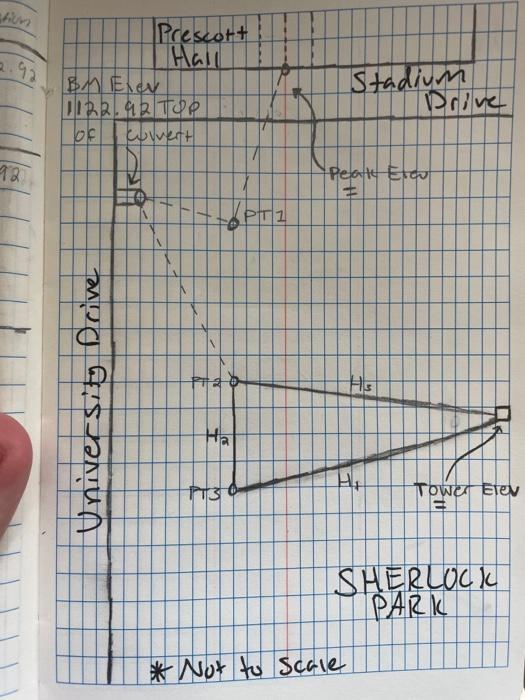 Prescott
Hall
Stadium
Drive
BM Elev
1122.92 TOP
of culvert
Peak Elev
=
PT1
University Drive
PT2
H3
H2
PT3
H1
Tower Elev
=
SHERLOCK
PARK
* Not to Scale
2.92
92